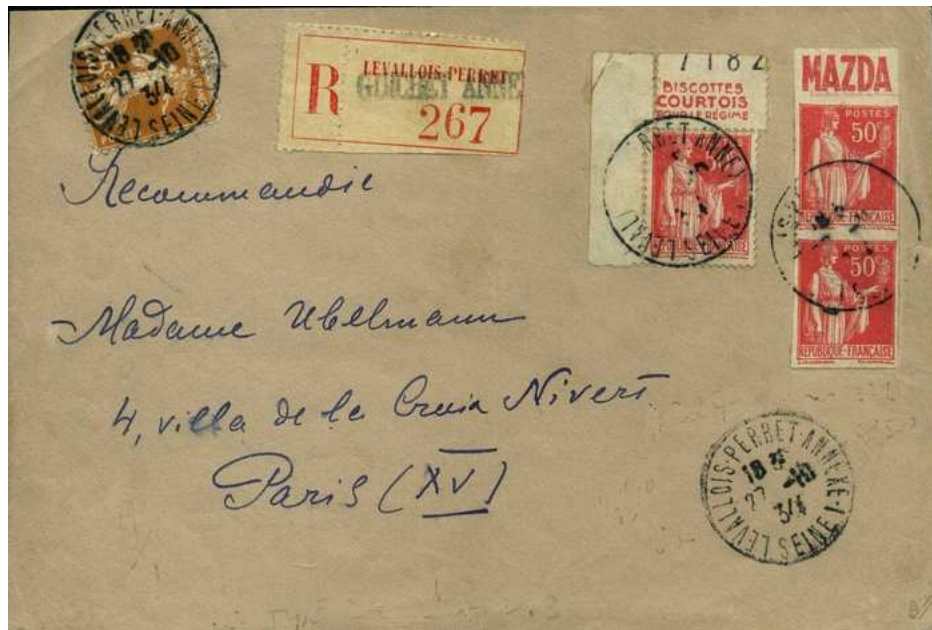 LEVALLOIS-PERRET-ANNEXE 1
18 10
27
34
SEINE
R
LEVALLOIS-PERRET
GUICHET ANNE
267
7182
BISCOTTES
COURTOIS
POUR LE RÉGIME
RRET-ANNEXE
LEVALL
SEINE
MAZDA
POSTES
50c
RÉPUBLIQUE-FRANÇAISE
POSTES
50c
RÉPUBLIQUE-FRANÇAISE
Recommandée
Madame Ubelmann
4, villa de la Croix Nivert
Paris (XV)
LEVALLOIS-PERRET-ANNEXE 1
18 10
27
34
SEINE